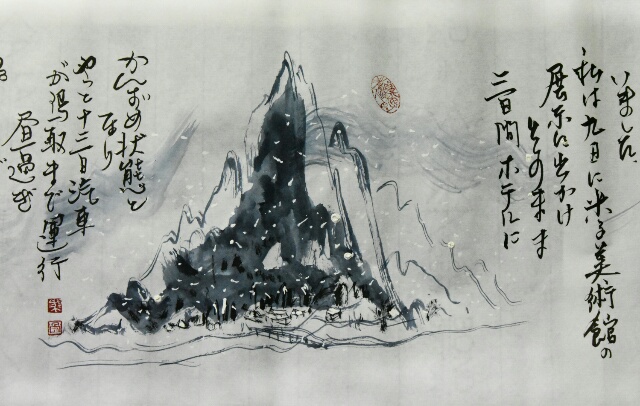 いました
私は九日に米子美術館の
展示に出かけ
そのまま
三日間ホテルに
かんずめ状態と
なり
やっと十三日汽車
が鳥取まで運行
昼過ぎ